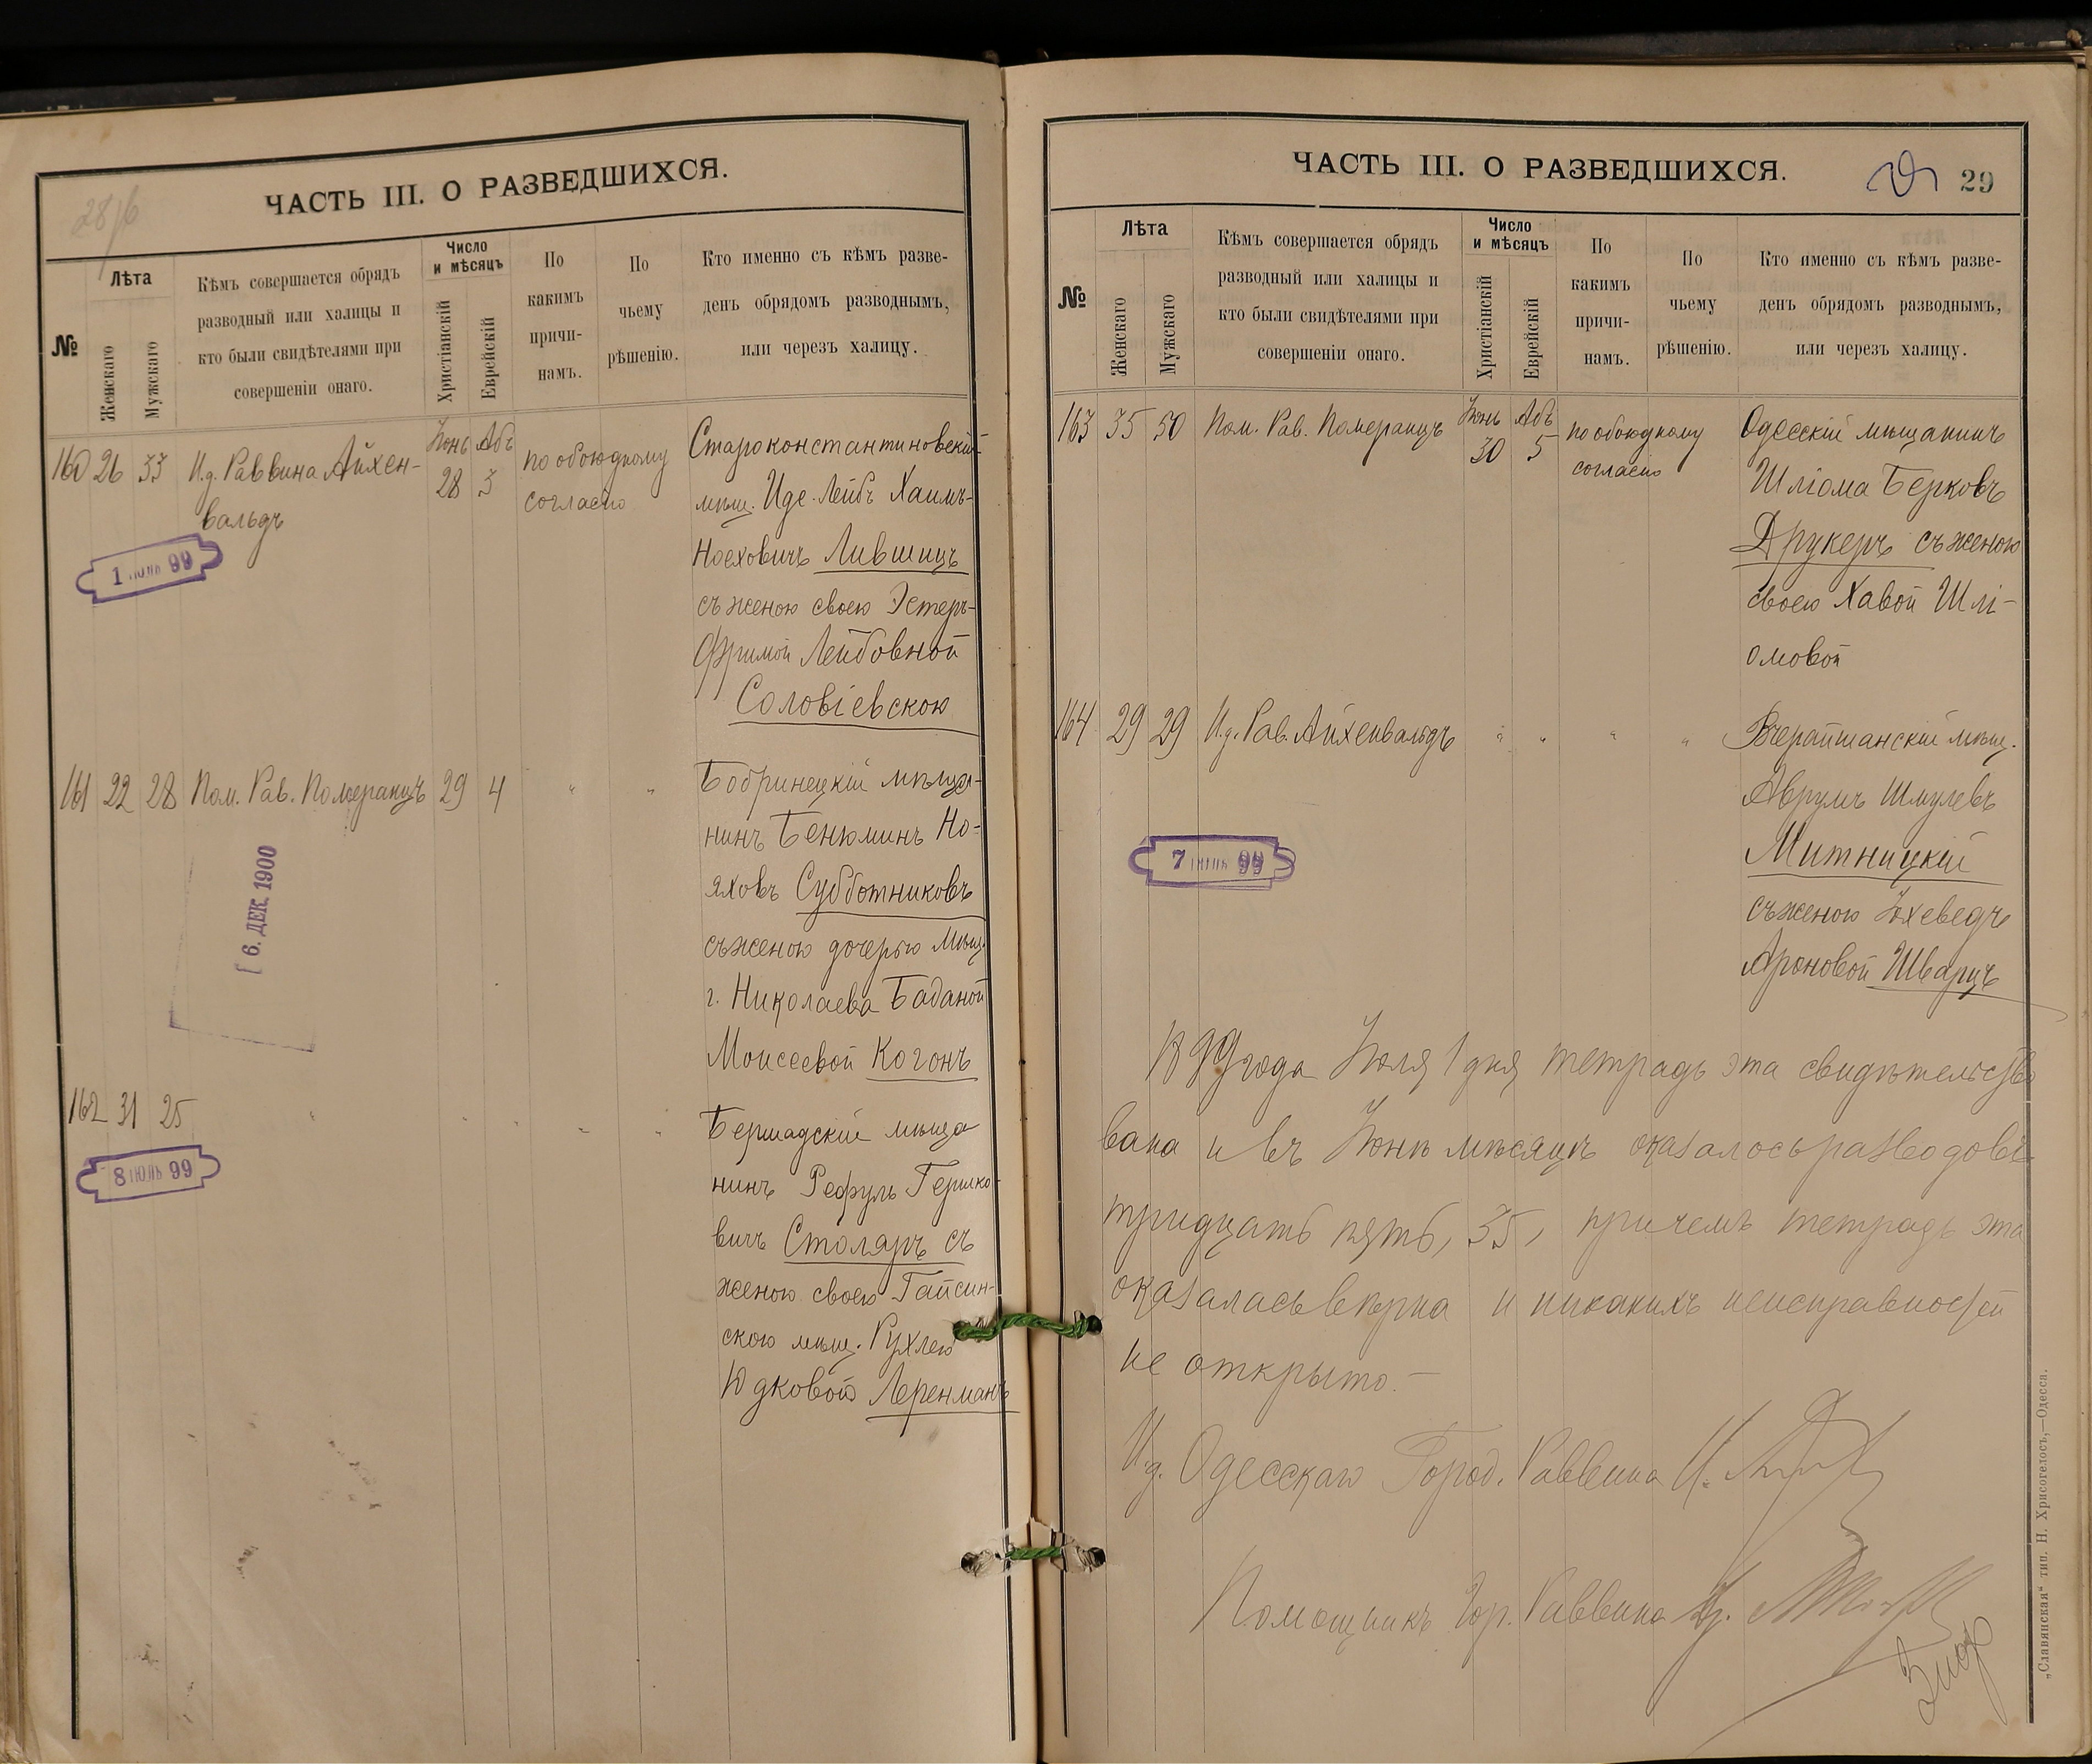 28/6
ЧАСТЬ III. О РАЗВЕДШИХСЯ.
№
Лѣта
Женскаго
Мужскаго
Кѣмъ совершается обрядъ
разводный или халицы и
кто были свидѣтелями при
совершеніи онаго.
Число
и мѣсяцъ
Христіанскій
Еврейскій
По
какимъ
причи-
намъ.
По
чьему
рѣшенію.
Кто именно съ кѣмъ разве-
денъ обрядомъ разводнымъ,
или черезъ халицу.
160 26 33 И.д. Раввина Айхен-
вальдъ
Іюнь Абъ
28 3
по обоюдному
согласію
Староконстантиновскій
мѣщ. Иде-Лейбъ Хаимъ-
Ноеховичъ Лившицъ
съ женою своею Эстеръ-
Фримой Лейбовной
Соловіевскою
1 ІЮЛЬ 99
161 22 28 Пом. Рав. Померанцъ 29 4 " "
Бобринецкій мѣща-
нинъ Бенюминъ Но-
яховъ Субботниковъ
съ женою дочерью мѣщ.
г. Николаева Баданой
Моисеевой Когонъ
6. ДЕК. 1900
162 31 25 " " " " "
Бершадскій мѣща
нинъ Рефуль Гершко-
вичъ Столяръ съ
женою своею Гайсин-
скою мѣщ. Рухлею
Юдковой Леренманъ
8 ІЮЛЬ 99
ЧАСТЬ III. О РАЗВЕДШИХСЯ.
29
№
Лѣта
Женскаго
Мужскаго
Кѣмъ совершается обрядъ
разводный или халицы и
кто были свидѣтелями при
совершеніи онаго.
Число
и мѣсяцъ
Христіанскій
Еврейскій
По
какимъ
причи-
намъ.
По
чьему
рѣшенію.
Кто именно съ кѣмъ разве-
денъ обрядомъ разводнымъ,
или черезъ халицу.
163 35 50 Пом. Рав. Померанцъ
Іюнь Абъ
30 5
по обоюдному
согласію
Одесскій мѣщанинъ
Шліома Берковъ
Друкеръ съ женою
своею Хавой Шлі-
омовой
164 29 29 И.д. Рав. Айхенвальдъ " " " "
Вчерайшанскій мѣщ.
Аврумъ Шмулевъ
Митницкій
съ женою Іохеведъ
Ароновой Шварцъ
7 ІЮЛЬ 99
1899 года Іюля 1 дня тетрадь эта свидѣтельство
вана и въ Іюнѣ мѣсяцѣ оказалось разводовъ
тридцать пять, 35, причемъ тетрадь эта
оказалась вѣрна и никакихъ неисправностей
не открыто. —
И.д. Одесскаго Город. Раввина
Помощникъ Гор. Раввина
„Славянская“ тип. Н. Хрисогелосъ,—Одесса.